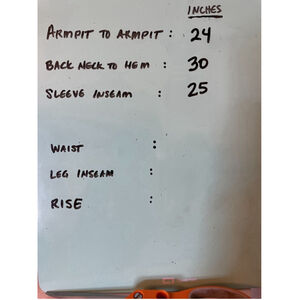 INCHES
ARMPIT TO ARMPIT : 24
BACK NECK TO HEM : 30
SLEEVE INSEAM : 25
WAIST :
LEG INSEAM :
RISE :